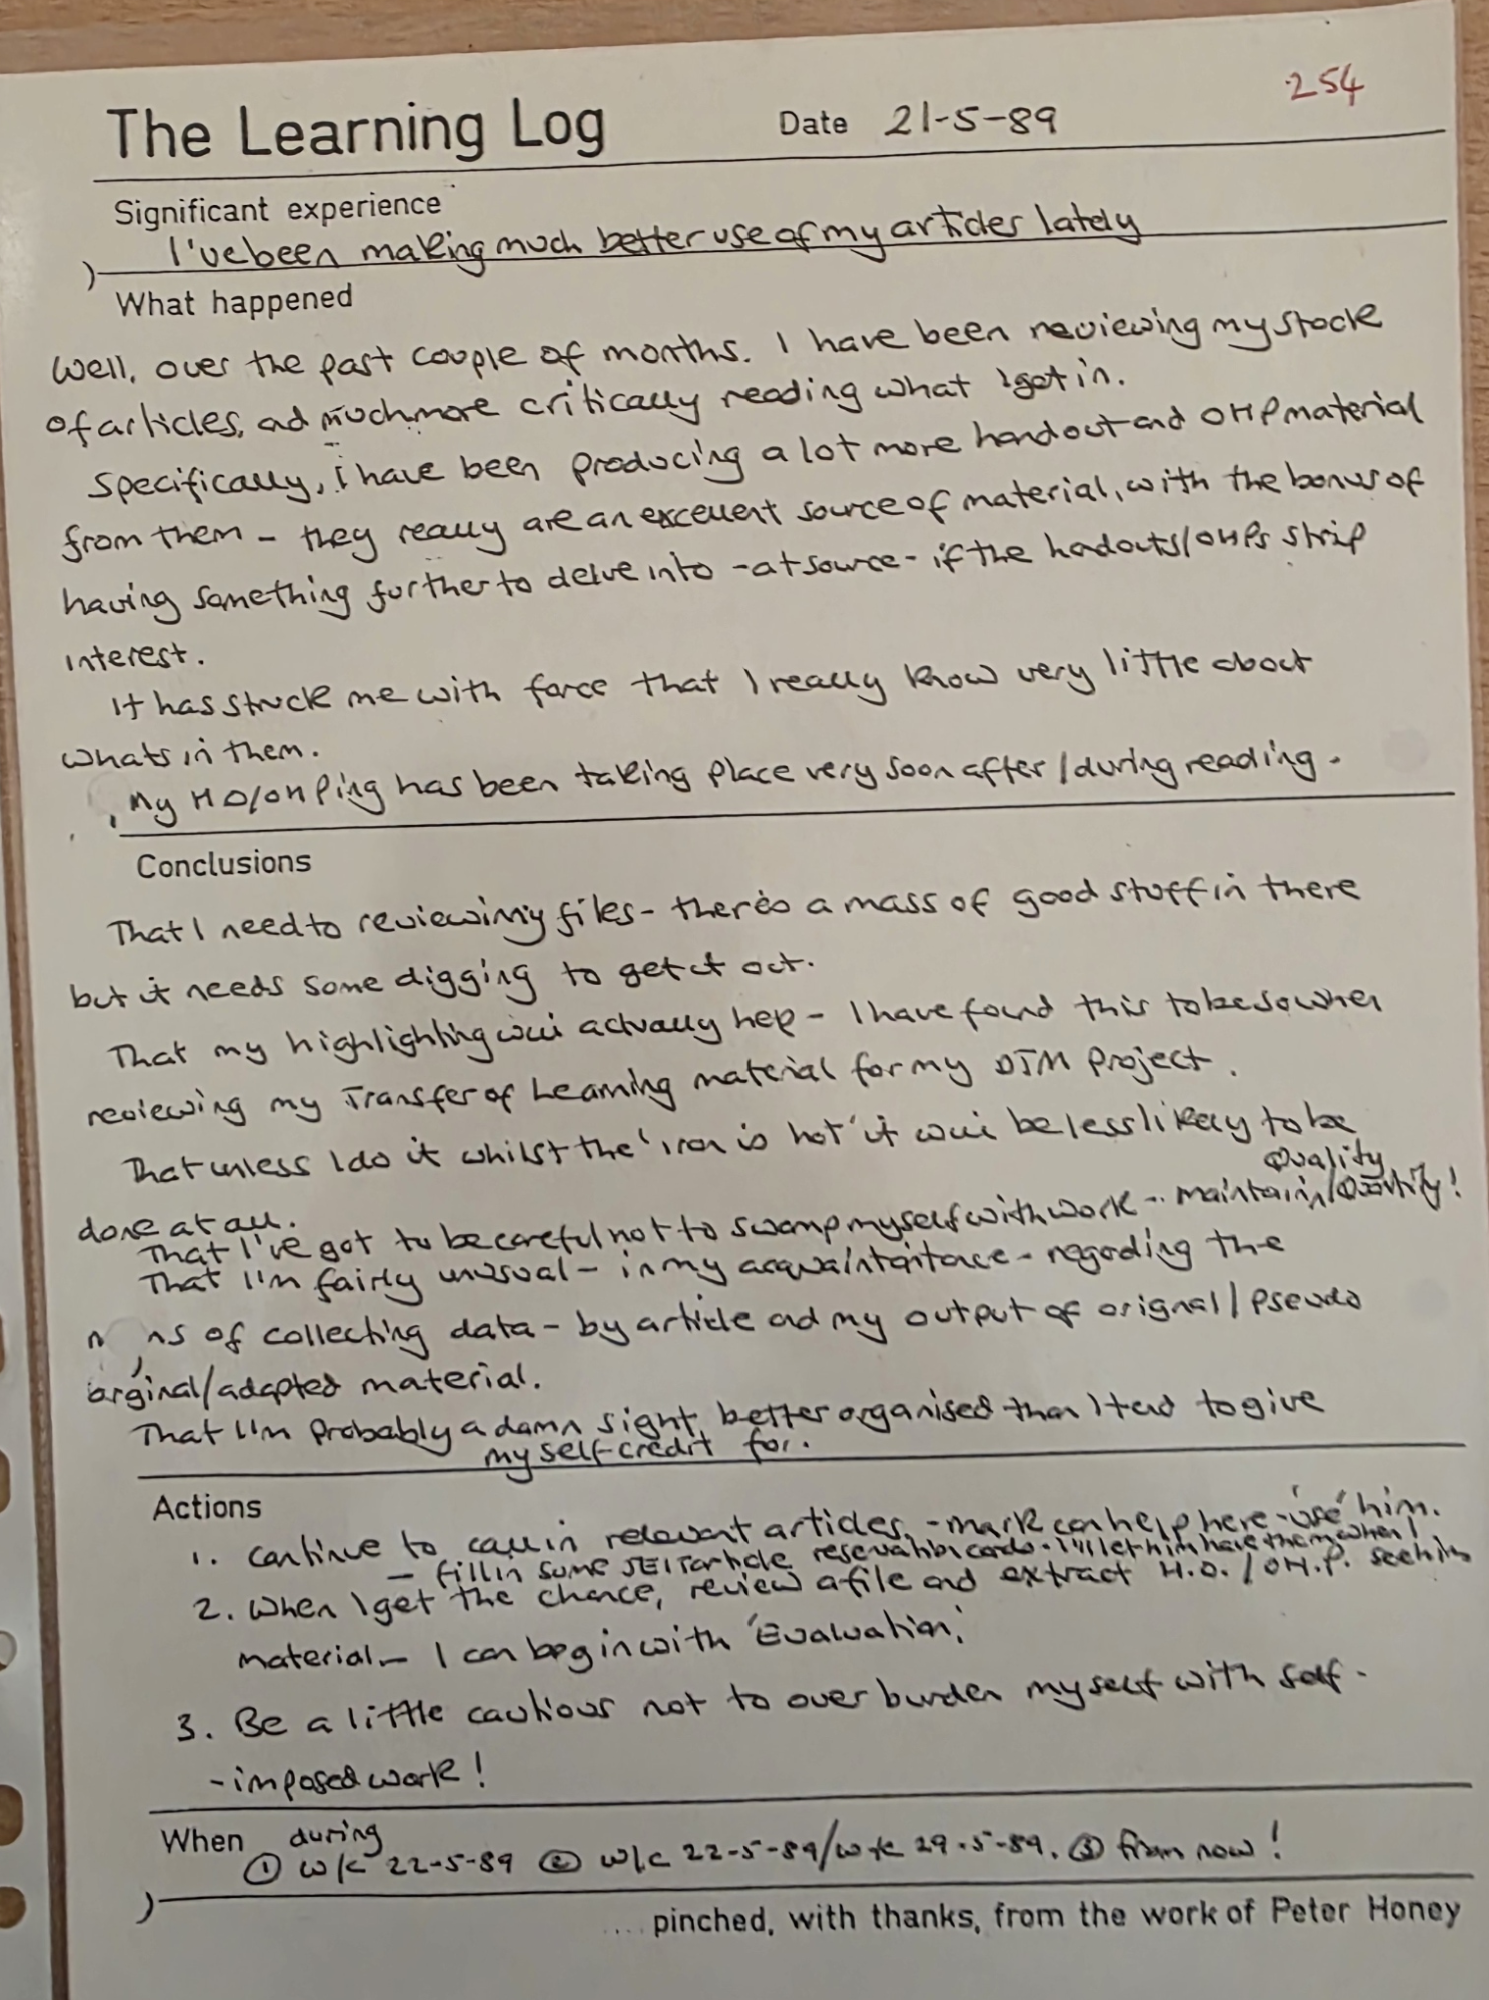 254
The Learning Log Date 21-5-89
Significant experience
I've been making much better use of my articles lately
What happened
Well, over the past couple of months. I have been reviewing my stock
of articles, ad much more critically reading what I get in.
Specifically, I have been producing a lot more handout and OHP material
from them - they really are an excellent source of material, with the bonus of
having something further to delve into - at source - if the hadouts/OHPs strip
interest.
It has struck me with force that I really know very little about
whats in them.
My HO/OHPing has been taking place very soon after/during reading.
Conclusions
That I need to review my files - there's a mass of good stuff in there
but it needs some digging to get it out.
That my highlighting will actually hep - I have found this to be so when
reviewing my Transfer of Learning material for my DTM project.
That unless I do it whilst the 'iron is hot' it will be less likely to be
Quality
done at all.
That I've got to be careful not to swamp myself with work - maintain/Quantity!
That I'm fairly unusual - in my - regarding the
of collecting data - by article ad my output of orignal/pseudo
orginal/adapted material.
That I'm probably a damn sight better organised than I tend to give
myself credit for.
Actions
1. Continue to call in relevant articles. - Mark can help here - 'use' him.
- fill in some article reservation cards. I'll let him have them when I
2. When I get the chance, review a file and extract H.O./OH.P. see him
material - I can begin with 'Evaluation'.
3. Be a little cautious not to over burden myself with self-
-imposed work!
When during
① W/C 22-5-89 ② W/C 22-5-89/W/C 29.5-89. ③ from now!
.... pinched, with thanks, from the work of Peter Honey